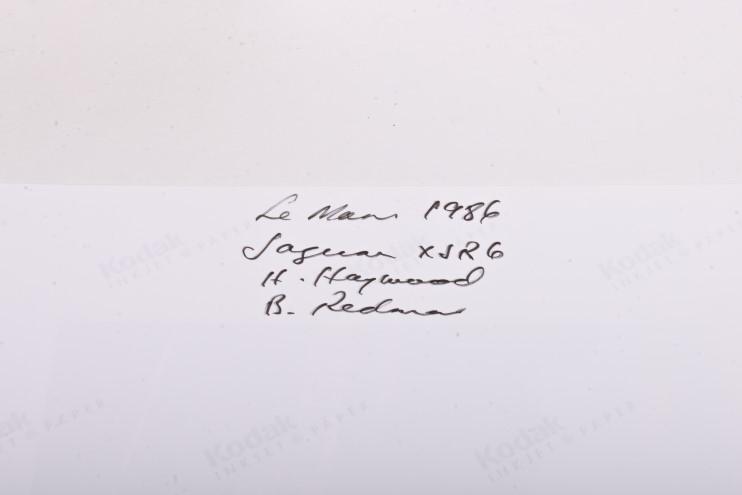 Le Mans 1986
Jaguar XJR6
H. Haywood
B. Redman
Kodak
INKJET PAPER
Kodak
INKJET PAPER
Kodak
INKJET PAPER
Kodak
INKJET PAPER
Kodak
INKJET PAPER
Kodak
INKJET PAPER